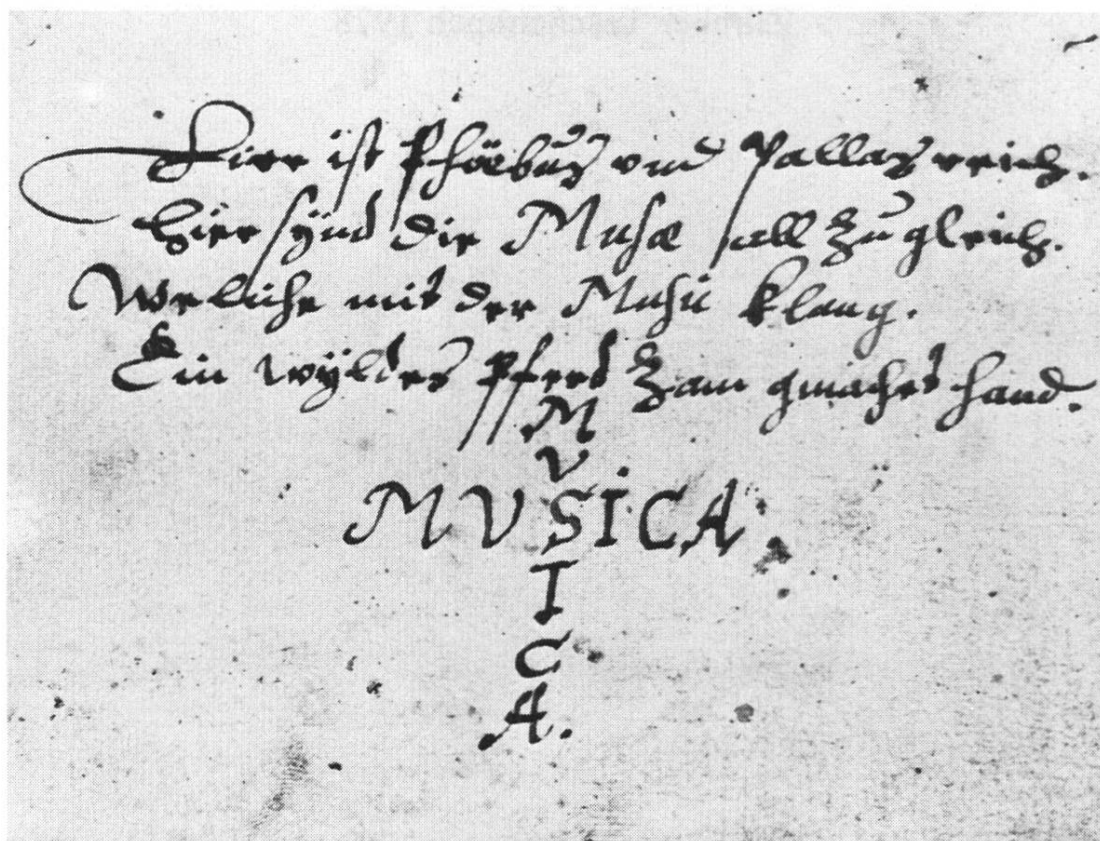 Hier ist Phöebus vnd Pallas reich.
Hier synd die Musæ all zu gleich.
Weliche mit der Music klang.
Ein wyldes Pferd Zam gmachet hand.
M
V
MVSICA.
I
C
A.